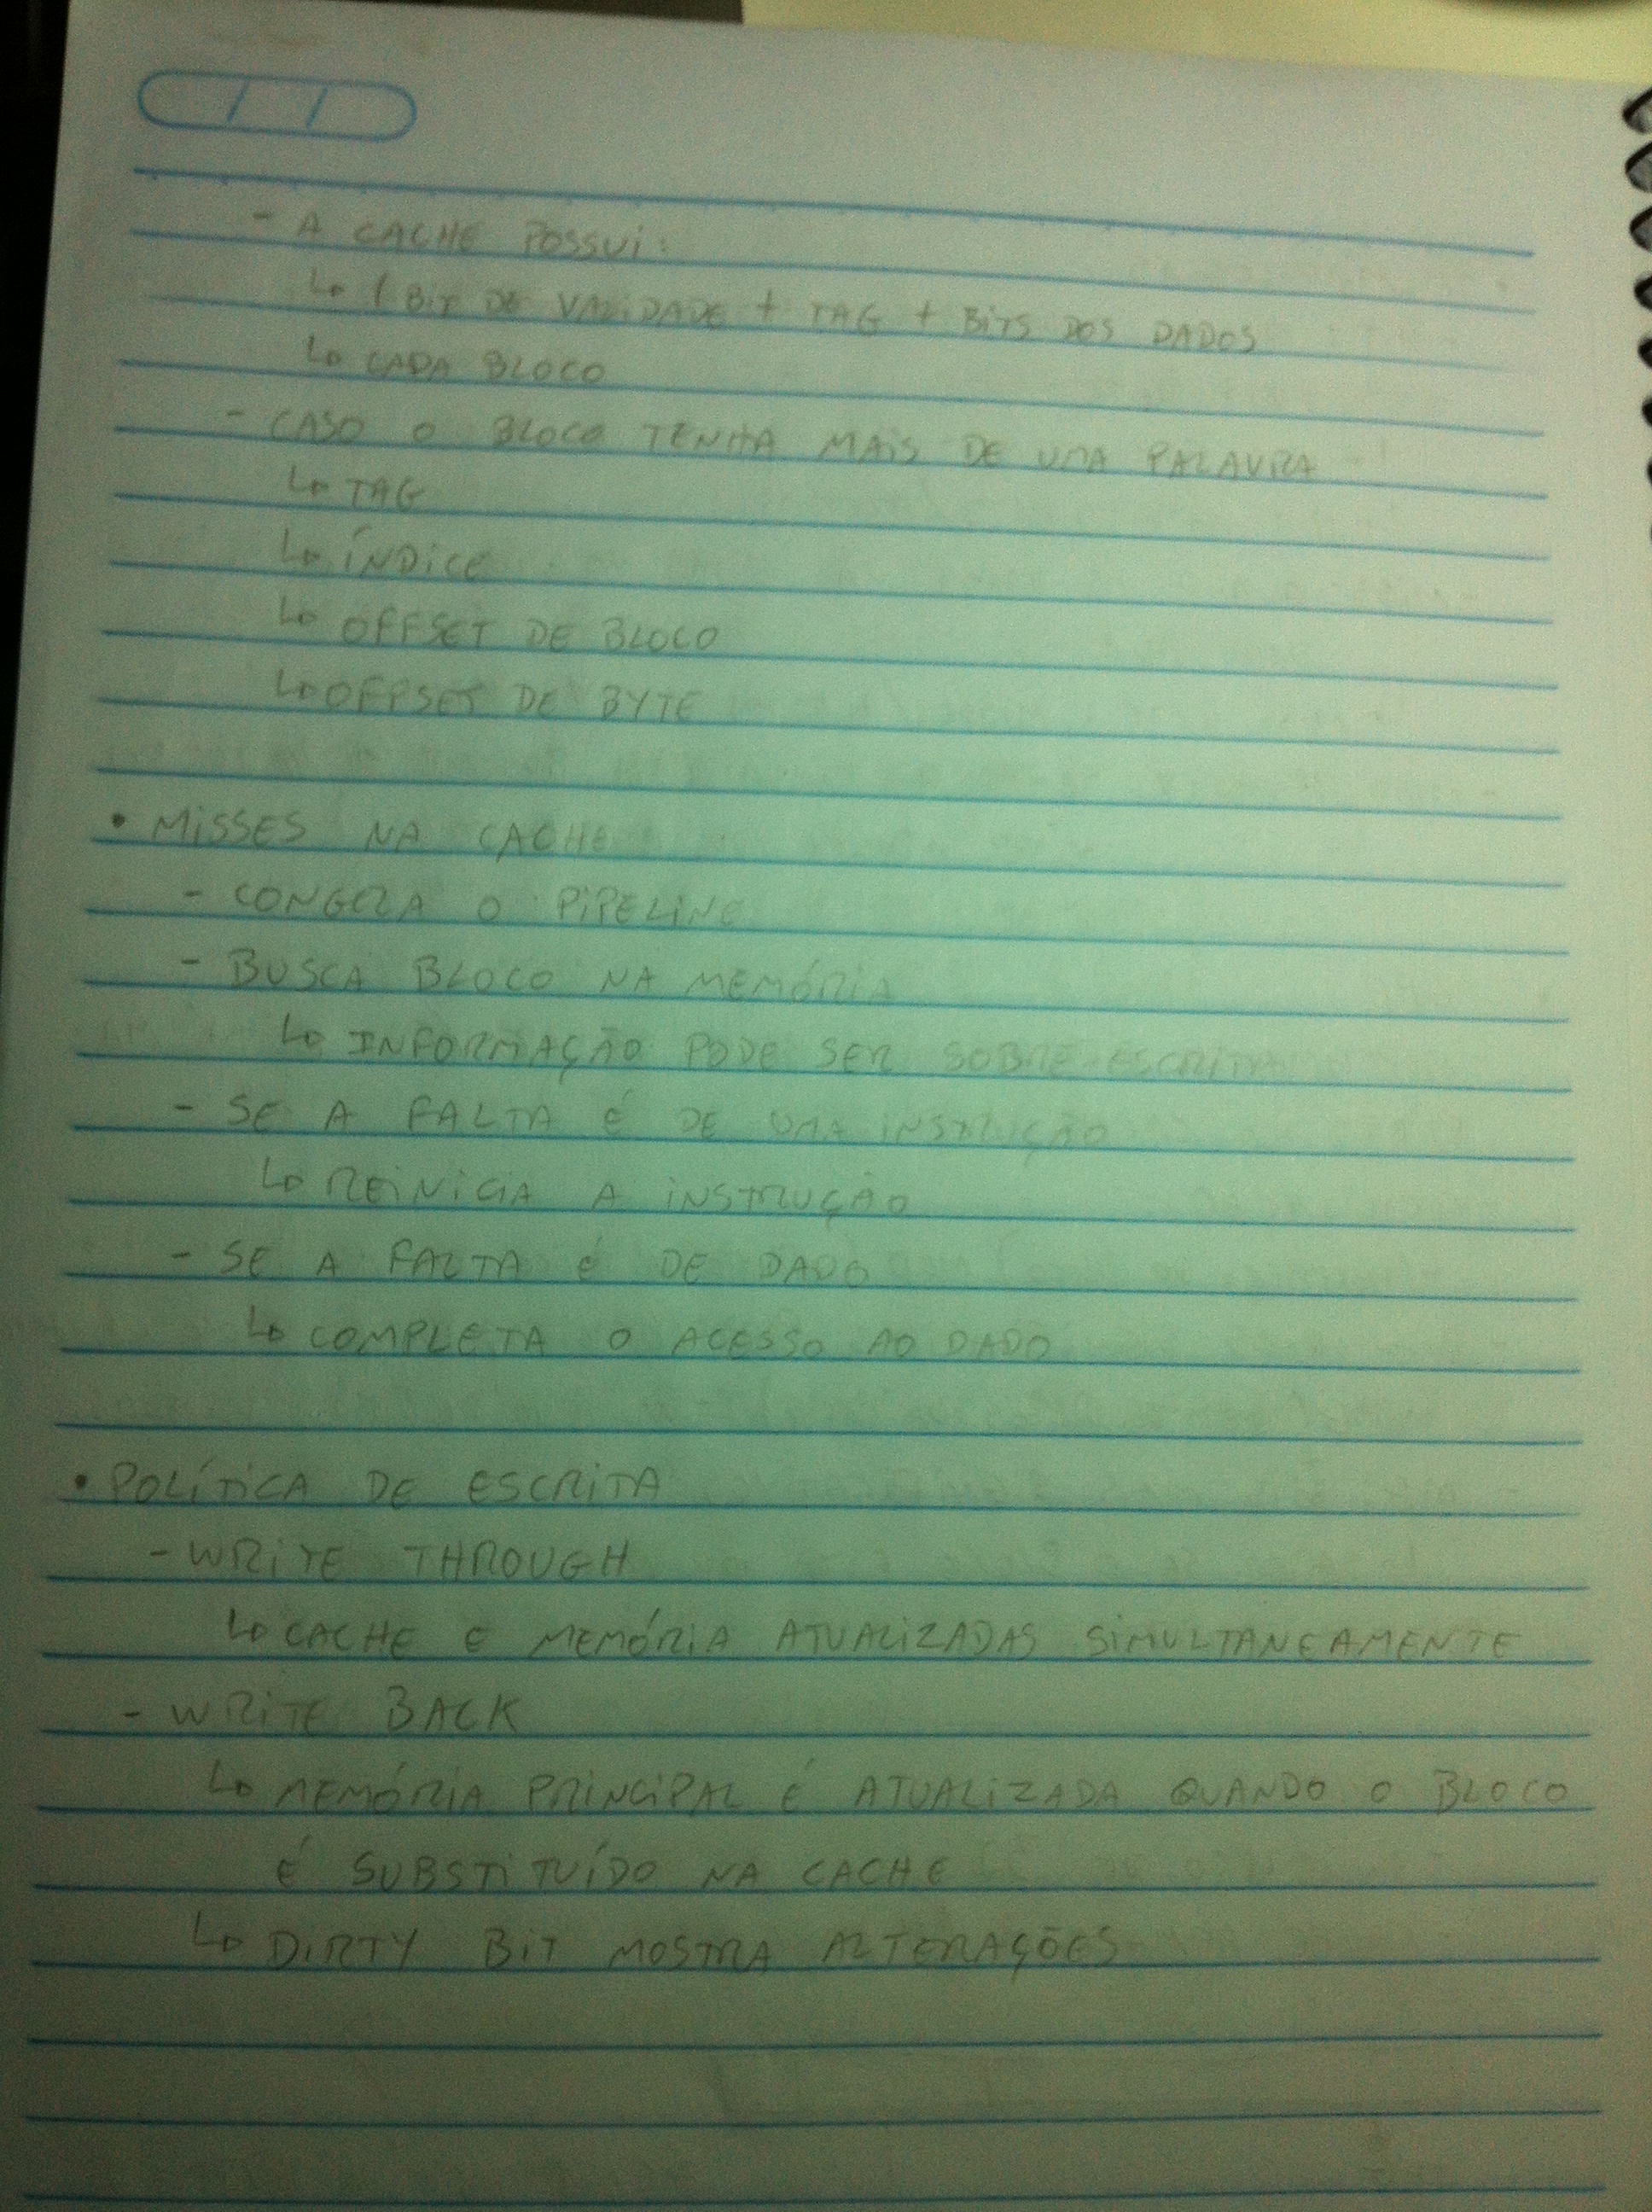 - A CACHE POSSUI:
↳ 1 BIT DE VALIDADE + TAG + BITS DOS DADOS
↳ CADA BLOCO
- CASO O BLOCO TENHA MAIS DE UMA PALAVRA
↳ TAG
↳ ÍNDICE
↳ OFFSET DE BLOCO
↳ OFFSET DE BYTE
• MISSES NA CACHE
- CONGELA O PIPELINE
- BUSCA BLOCO NA MEMÓRIA
↳ INFORMAÇÃO PODE SER SOBRE-ESCRITA
- SE A FALTA É DE UMA INSTRUÇÃO
↳ REINICIA A INSTRUÇÃO
- SE A FALTA É DE DADO
↳ COMPLETA O ACESSO AO DADO
• POLÍTICA DE ESCRITA
- WRITE THROUGH
↳ CACHE E MEMÓRIA ATUALIZADAS SIMULTANEAMENTE
- WRITE BACK
↳ MEMÓRIA PRINCIPAL É ATUALIZADA QUANDO O BLOCO
É SUBSTITUÍDO NA CACHE
↳ DIRTY BIT MOSTRA ALTERAÇÕES